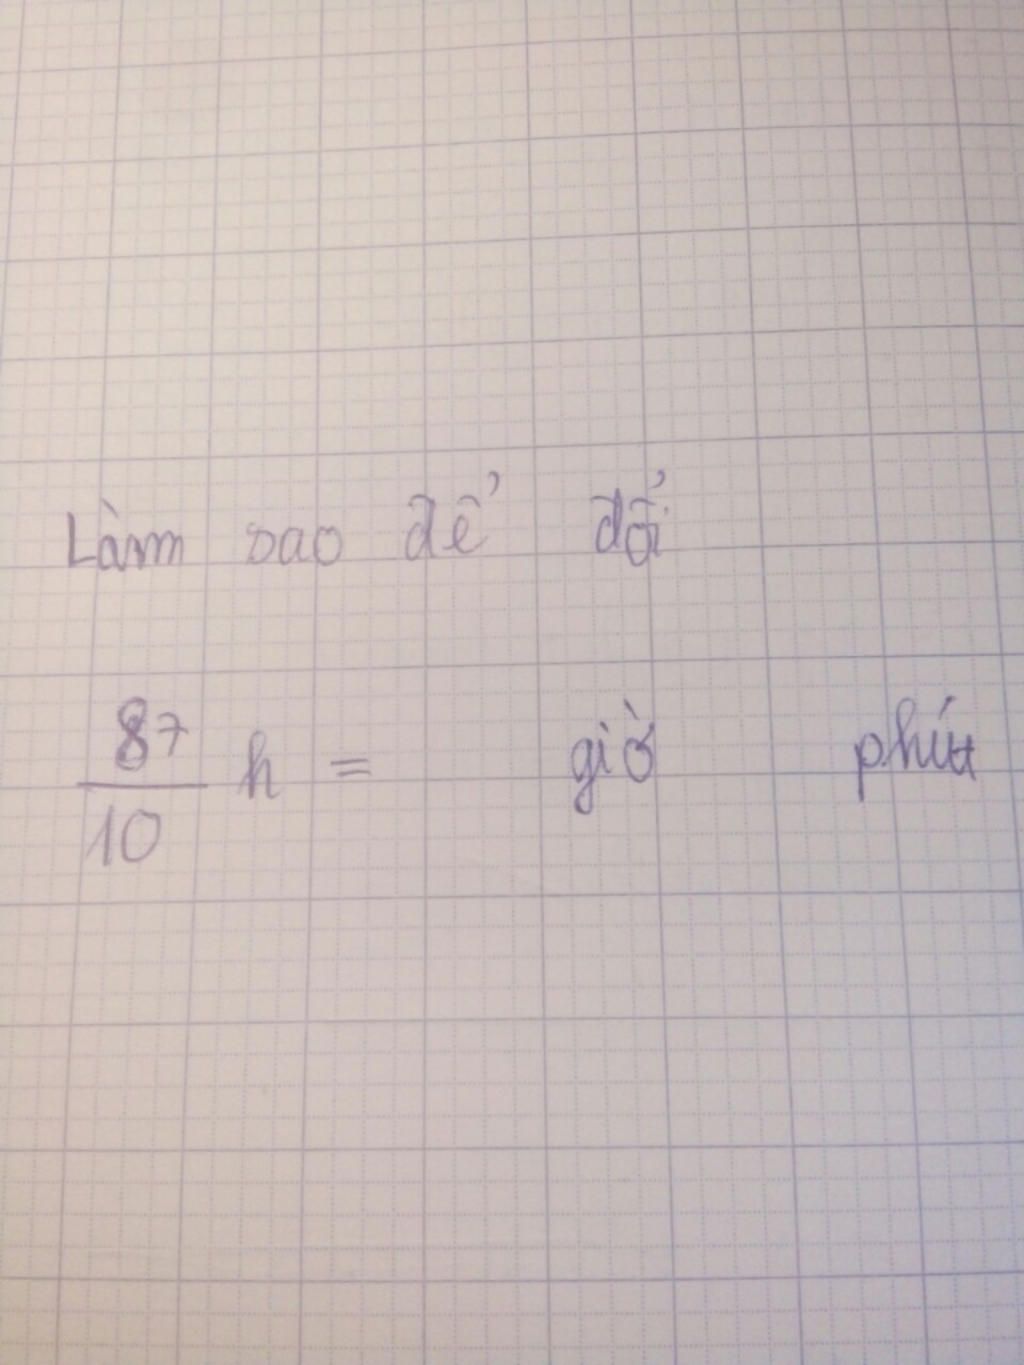 Làm sao để đổi
87/10 h = giờ phút